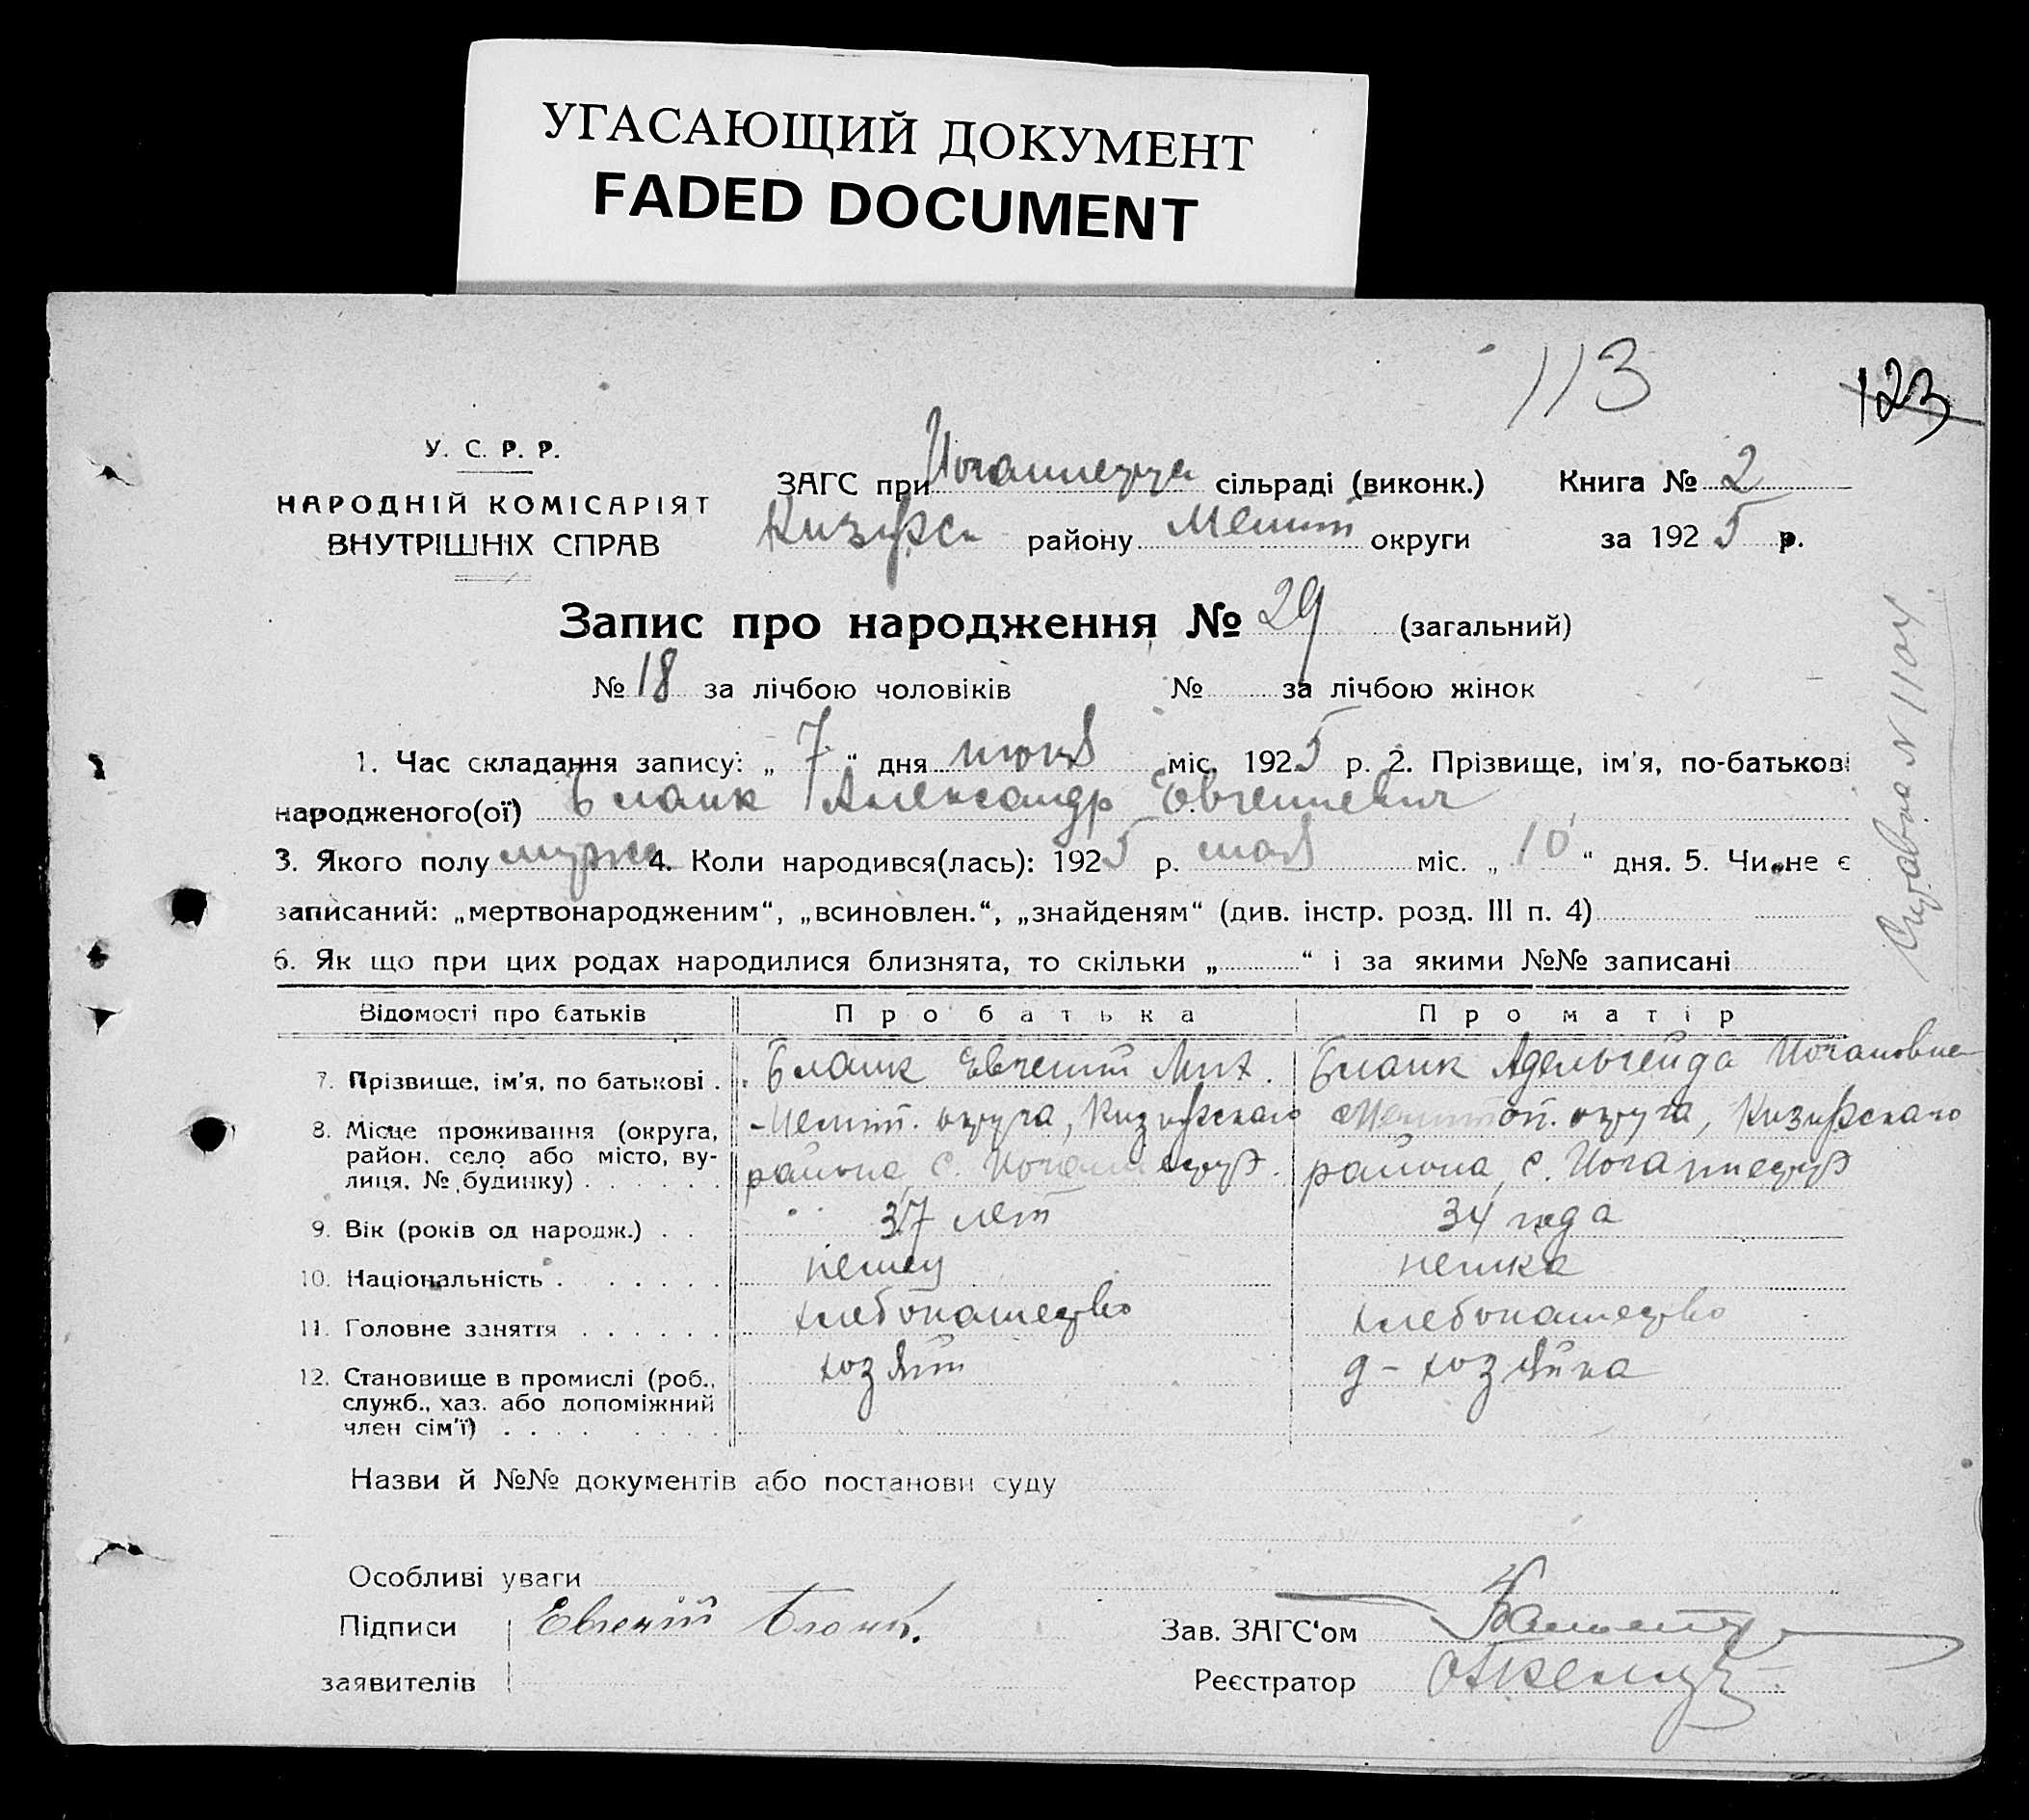 УГАСАЮЩИЙ ДОКУМЕНТ
FADED DOCUMENT
113
123
У. С. Р. Р.
НАРОДНІЙ КОМІСАРІЯТ
ВНУТРІШНІХ СПРАВ
ЗАГС при сільраді (виконк.) Книга № 2
району округи за 1925 р.
Запис про народження № 29 (загальний)
№ 18 за лічбою чоловіків № за лічбою жінок
1. Час складання запису: „ 7 “ дня июня міс. 1925 р. 2. Прізвище, ім'я, по-батькові
народженого(ої) Бланк Александр Евгениевич
3. Якого полу мужск 4. Коли народився(лась): 1925 р. мая міс. „ 10 “ дня. 5. Чи не є
записаний: „мертвонародженим“, „всиновлен.“, „знайденям“ (див. інстр. розд. III п. 4)
6. Як що при цих родах народилися близнята, то скільки „ “ і за якими №№ записані
Справка N 1104
Відомості про батьків Про батька Про матір
7. Прізвище, ім'я, по батькові . Бланк Евгений Мих. Бланк Адельгейда Иогановна
8. Місце проживання (округа, Мелит. округа, Мелитоп. округа,
район, село або місто, ву- района, с. района, с.
лиця, № будинку)
9. Вік (років од народж.) . . 37 лет 34 года
10. Національність . немец немка
11. Головне заняття хлебопашество хлебопашество
12. Становище в промислі (роб., хозяин д-хозяйка
служб., хаз. або допоміжний
член сім'ї)
Назви й №№ документів або постанови суду
Особливі уваги
Підписи Евгений Бланк. Зав. ЗАГС'ом
заявителів Реєстратор